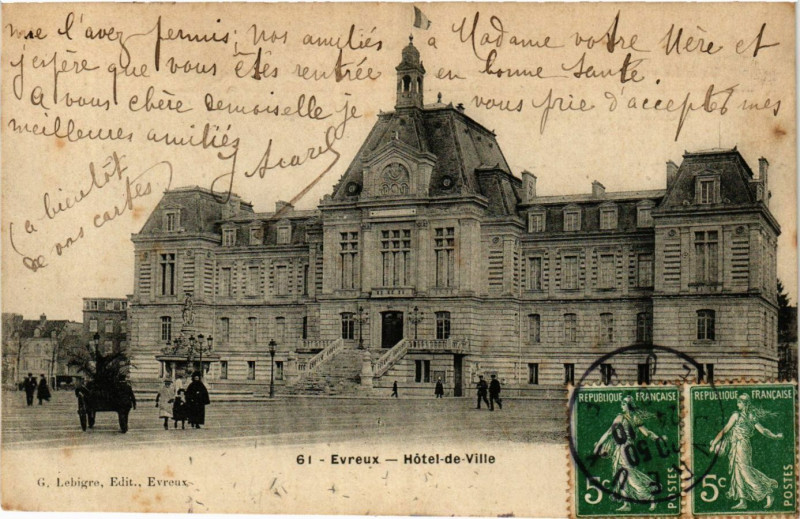 me l'avez permis; nos amitiés à Madame votre Mère et
j'espère que vous êtes rentrée en bonne santé.
A vous chère Demoiselle je vous prie d'accepter mes
meilleures amitiés
(à bientôt
de vos cartes)
61 - Evreux — Hôtel-de-Ville
G. Lebigre, Edit., Evreux
REPUBLIQUE FRANÇAISE
5c
POSTES
REPUBLIQUE FRANÇAISE
5c
POSTES